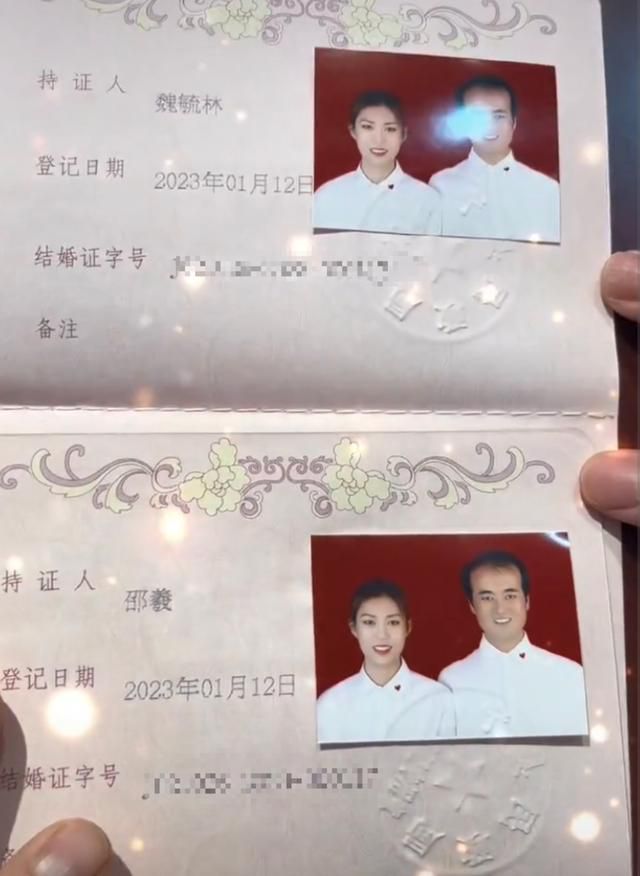 持证人 魏毓林
登记日期 2023年01月12日
结婚证字号
备注
持证人 邵羲
登记日期 2023年01月12日
结婚证字号